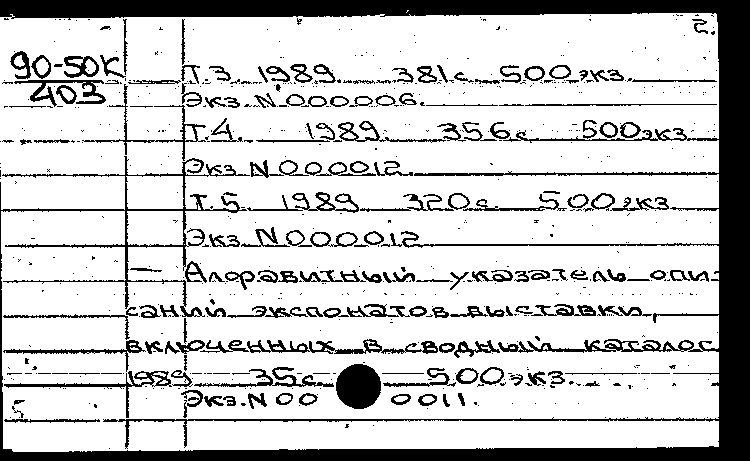 2.
90-50К
403
Т.3. 1989. 381с. 500экз.
Экз. N 000006.
Т.4. 1989. 356с. 500экз
Экз. N 000012.
Т.5. 1989. 320с. 500экз.
Экз. N 000012
— Алфавитный указатель опи-
саний экспонатов выставки,
включенных в сводный каталог
1989 35с. 500экз.
Экз. N 00 0011.
5